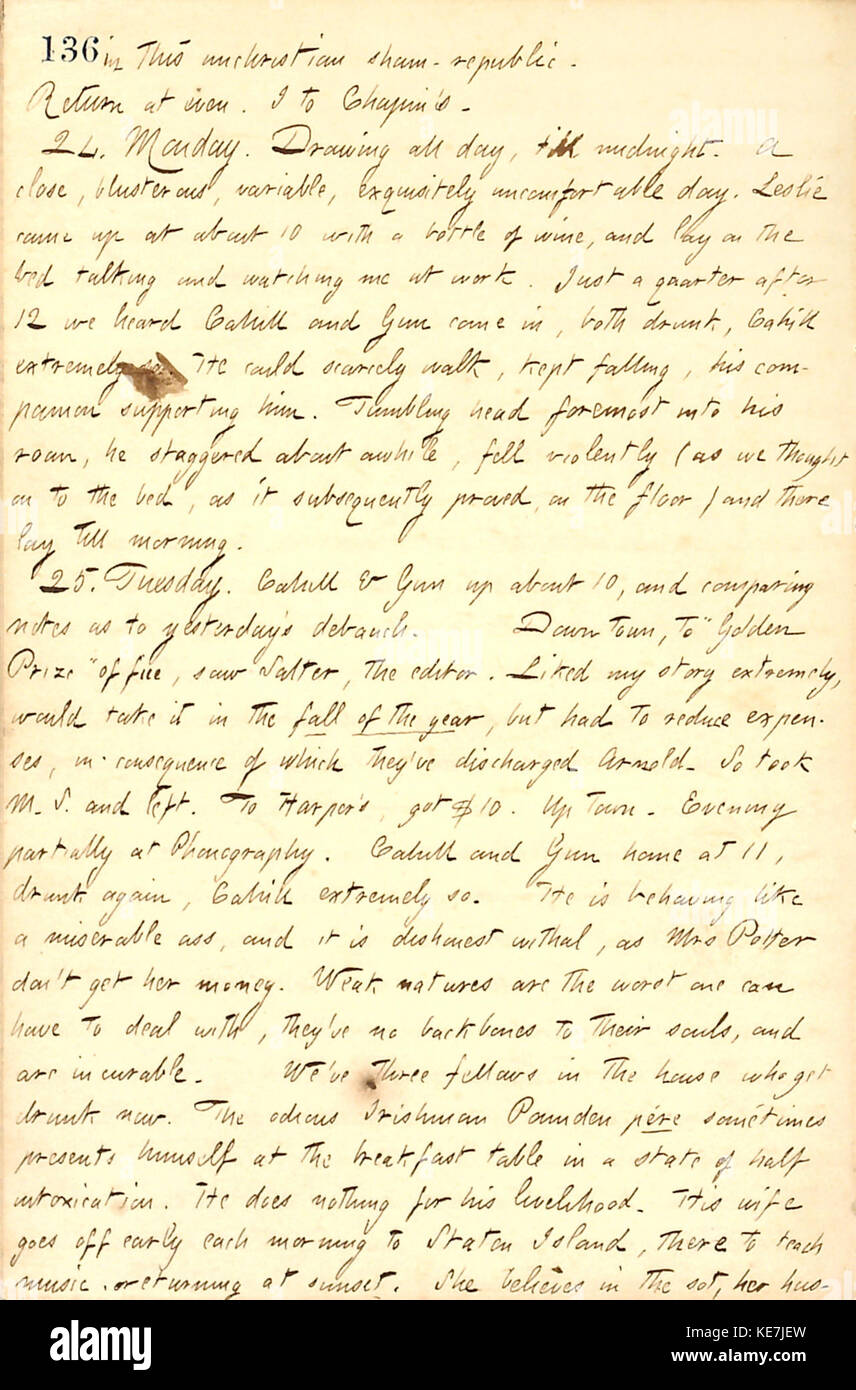 136 in this unchristian sham-republic.
Return at even. I to Chapin's.
24. Monday. Drawing all day, till midnight. A
close, blusterous, variable, exquisitely uncomfortable day. Leslie
came up at about 10 with a bottle of wine, and lay on the
bed talking and watching me at work. Just a quarter after
12 we heard Cahill and Gun come in, both drunk, Cahill
extremely so. He could scarcely walk, kept falling, his com-
panion supporting him. Tumbling head foremost into his
room, he staggered about awhile, fell violently (as we thought
on to the bed, as it subsequently proved, on the floor) and there
lay till morning.
25. Tuesday. Cahill & Gun up about 10, and comparing
notes as to yesterday's debauch. Down town, to "Golden
Prize" office, saw Salter, the editor. Liked my story extremely,
would take it in the fall of the year, but had to reduce expen-
ses, in consequence of which they've discharged Arnold. So took
M.S. and left. To Harper's, got $10. Up Town. Evening
partially at Phonography. Cahill and Gun home at 11,
drunk again, Cahill extremely so. He is behaving like
a miserable ass, and it is dishonest withal, as Mrs Potter
don't get her money. Weak natures are the worst one can
have to deal with, they've no backbones to their souls, and
are incurable. We've three fellows in the house who get
drunk now. The odious Irishman Paunden père sometimes
presents himself at the breakfast table in a state of half
intoxication. He does nothing for his livelihood. His wife
goes off early each morning to Staten Island, there to teach
music, returning at sunset. She believes in the sot, her hus-
alamy
Image ID: KE7JEW
www.alamy.com